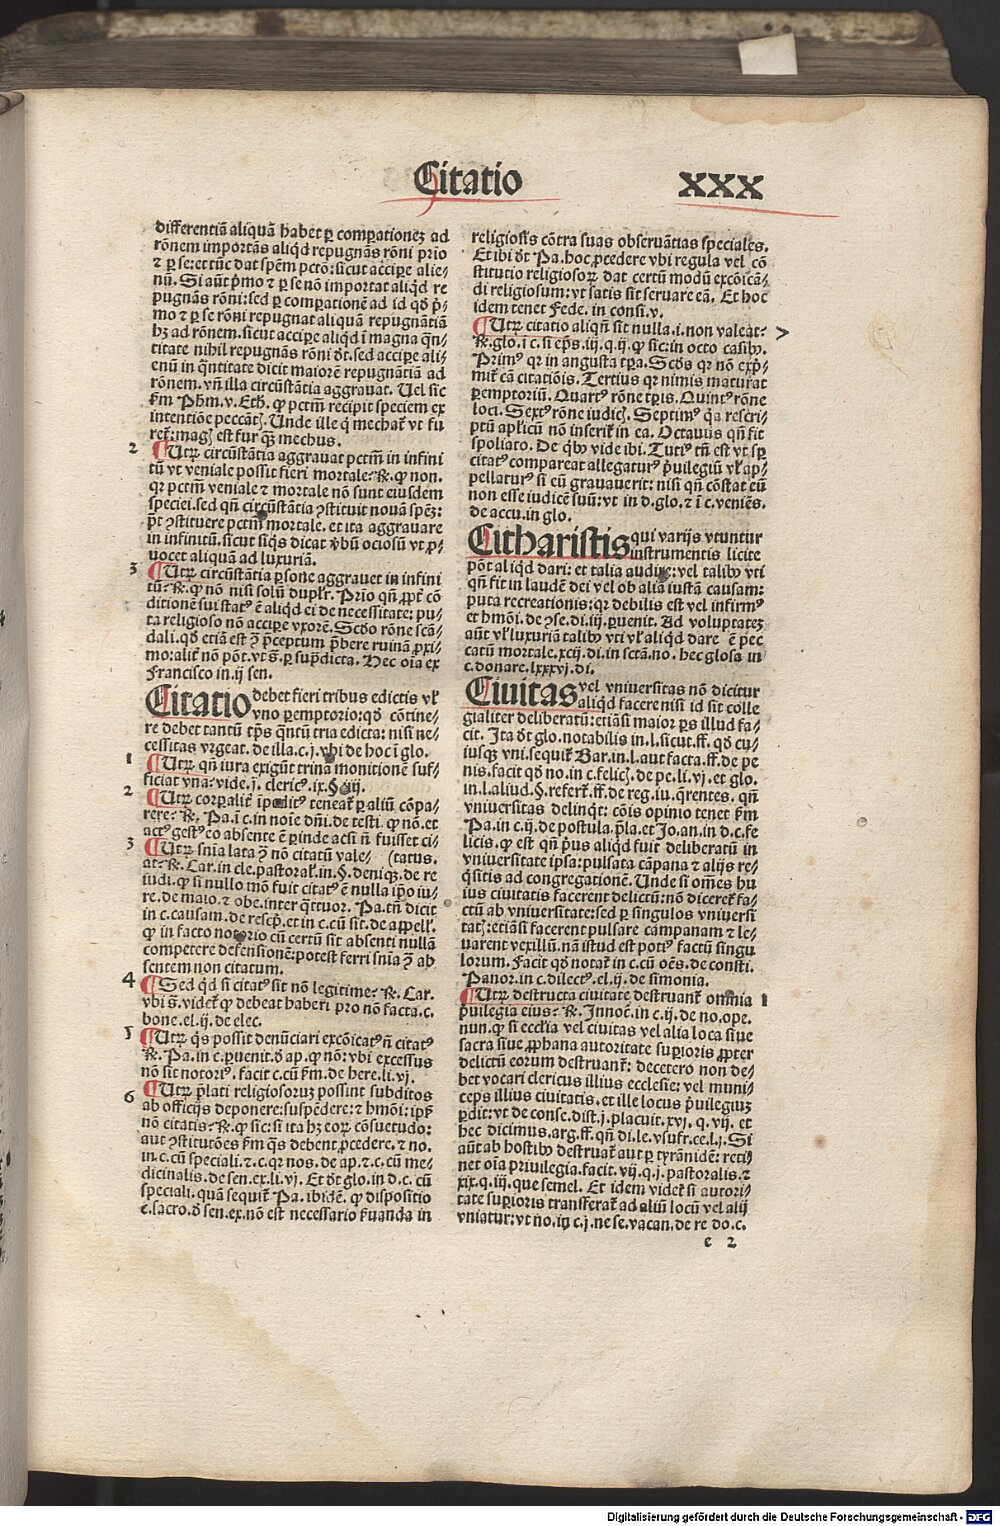 Citatio
XXX
differentiā aliquā habet ꝑ comꝑationeꝫ ad
rōnem importās aliqd repugnās rōni prio
⁊ ꝑ se: et tūc dat spēm pctō: sicut accipe alie-
nū. Si aūt pmo ⁊ ꝑ se nō importat aliqd re
pugnās rōni: sed ꝑ comꝑationē ad id qd p-
mo ⁊ ꝑ se rōni repugnat aliquā repugnātiā
hꝫ ad rōnem. sicut accipe aliqd ī magna qn-
titate nihil repugnās rōni dt. sed accipe ali-
enū in qntitate dicit maiorē repugnātiā ad
rōnem. vn illa circūstātia aggrauat. Uel sic
ẜm Phm. v. Eth. ꝙ pctm recipit speciem ex
intentiōe peccātꝭ. Unde ille q mechat vt fu
ret: magꝭ est fur qꝫ mechus.
2
¶ Utꝝ circūstātia aggrauat pctm in infini
tū vt veniale possit fieri mortale. ℟. ꝙ non.
qꝛ pctm veniale ⁊ mortale nō sunt eiusdem
speciei. sed qn circūstātia ꝯstituit nouā spēꝫ:
pt ꝯstituere pctm mortale. et ita aggrauare
in infinitū. sicut siqs dicat vbū ociosū vt ꝓ-
uocet aliquā ad luxuriā.
3
¶ Utꝝ circūstātia ꝑsone aggrauet in infini
tū. ℟. ꝙ nō nisi solū duplr. Prio qn ꝓpt cō
ditionē sui statꝰ ē aliqd ei de necessitate: pu-
ta religioso nō accipe vxorē. Scdo rōne scā-
dali. qd etiā est ꝯ pceptum pbere ruinā ꝓxi-
mo: alit nō pōt. vt s. ꝑ supdicta. Hec oīa ex
Francisco in. ij sen.
Citatio debet fieri tribus edictis vl
vno ꝑemptorio: qd cōtine-
re debet tantū tps qntū tria edicta: nisi ne-
cessitas vrgeat. de illa. c. j. vbi de hoc ī glo.
1
¶ Utꝝ qn iura exigūt trina monitionē suf-
ficiat vna: vide. j. clericꝰ. ix. §. iij.
2
¶ Utꝝ corꝑalit īpeditꝰ teneat ꝑ aliū cōpa-
rere: ℟. Pa. i c. in noīe dni. de testi. ꝙ nō. et
actꝰ gestꝰ eo absente ē ꝑinde acsi n fuisset ci-
3
¶ Utꝝ snīa lata ꝯ nō citatū vale- (tatus.
at: ℟. Car. in cle. pastoral. in. §. deniqꝫ. de re
iudi. ꝙ si nullo mō fuit citatꝰ ē nulla ipo iu-
re. de maio. ⁊ obe. inter qttuor. Pa. tn dicit
in c. causam. de rescp. et in c. cū sit. de appell.
ꝙ in facto notorio cū certū sit absenti nullā
competere defensionē: potest ferri snīa ꝯ ab
sentem non citatum.
4
¶ Sed qd si citatꝰ sit nō legitime: ℟. Car.
vbi s. videt ꝙ debeat haberi pro nō facta. c.
bone. el. ij. de elec.
5
¶ Utꝝ qs possit denūciari excōicatꝰ n citatꝰ
℟. Pa. in c. ꝑuenit. d ap. ꝙ nō: vbi excessus
nō sit notoriꝰ. facit c. cū ẜm. de here. li. vj.
6
¶ Utꝝ plati religiosoruꝫ possint subditos
ab officijs deponere: suspēdere: ⁊ hmōi: ipẜ
nō citatis: ℟. ꝙ sic: si ita hꝫ eoꝝ cōsuetudo:
aut ꝯstitutōes ẜm qs debent ꝓcedere. ⁊ no.
in. c. cū speciali. ⁊. c. qꝛ nos. de ap. ⁊. c. cū me-
dicinalis. de sen. ex. li. vj. Et dt glo. in d. c. cū
speciali. quā sequit Pa. ibidē. ꝙ dispositio
c. sacro. d sen. ex. nō est necessario ẜuanda in
religiosis cōtra suas obseruātias speciales.
Et ibi dt Pa. hoc ꝓcedere vbi regula vel cō
stitutio religiosoꝝ dat certū modū excōicā-
di religiosum: vt satis sit seruare eā. Et hoc
idem tenet Fede. in consi. v.
¶ Utꝝ citatio aliqn sit nulla. i. non valeat:
℟. glo. i c. si eps. iij. q. ij. ꝙ sic: in octo casibꝰ.
Primꝰ qꝛ in angusta tꝑa. Scds qꝛ nō exp-
mit cā citatiōis. Tertius qꝛ nimis maturat
ꝑemptoriū. Quartꝰ rōne tpis. Quintꝰ rōne
loci. Sextꝰ rōne iudicꝭ. Septimꝰ qa rescri-
ptū aplicū nō inserit in ea. Octauus qn fit
spoliato. De qbꝰ vide ibi. Tutiꝰ tn est vt sp
citatꝰ compareat allegaturꝰ puilegiū vl ap-
pellaturꝰ si eū grauauerit: nisi qn cōstat eū
non esse iudicē suū: vt in d. glo. ⁊ i c. veniēs.
de accu. in glo.
Citharistis qui varijs vtuntur
instrumentis licite
pōt aliqd dari: et talia audire: vel talibꝰ vti
qn fit in laudē dei vel ob aliā iustā causam:
puta recreationis: qꝛ debilis est vel infirmꝰ
et hmōi. de ꝯse. di. iij. ꝑuenit. Ad voluptateꝫ
aūt vl luxuriā talibꝰ vti vl aliqd dare ē pec
catū mortale. xcij. di. in sctā. no. hec glosa in
c. donare. lxxxvj. di.
Ciuitas vel vniuersitas nō dicitur
aliqd facere nisi id sit colle
gialiter deliberatū: etiāsi maior ps illud fa-
cit. Ita dt glo. notabilis in. l. sicut. ff. qd cu-
iusqꝫ vni. sequit Bar. in. l. aut facta. ff. de pe
nis. facit qd no. in c. felicꝭ. de pe. li. vj. et glo.
in. l. aliud. §. refert. ff. de reg. iu. qrentes. qn
vniuersitas delinqt: cōis opinio tenet ẜm
Pa. in c. ij. de postula. pla. et Jo. an. in d. c. fe
licis. ꝙ est qn pus aliqd fuit deliberatū in
vniuersitate ipsa: pulsata cāpana ⁊ alijs re-
qsitis ad congregationē. Unde si omēs hu
ius ciuitatis facerent delictū: nō diceret fa-
ctū ab vniuersitate: sed ꝑ singulos vniuersi
tatꝭ: etiāsi facerent pulsare campanam ⁊ le-
uarent vexillū. nā istud est potiꝰ factū singu
lorum. Facit qd notat in c. cū oēs. de consti.
Panor. in c. dilectꝰ. el. ij. de simonia.
1
¶ Utꝝ destructa ciuitate destruant omnia
puilegia eius: ℟. Innoc. in c. ij. de no. ope.
nun. ꝙ si ecclīa vel ciuitas vel alia loca siue
sacra siue ꝓphana autoritate suꝑioris ꝓpter
delictū eorum destruant: decetero non de-
bet vocari clericus illius ecclesie: vel muni-
ceps illius ciuitatis. et ille locus puilegiuꝫ
ꝑdit: vt de conse. dist. j. placuit. xvj. q. vij. et
hec dicimus. arg. ff. qn di. le. vsufr. ce. l. j. Si
aūt ab hostibꝰ destruat aut ꝑ tyrānidē: reti-
net oīa priuilegia. facit. vij. q. j. pastoralis. ⁊
xix. q. iij. que semel. Et idem videt si autori-
tate suꝑioris transferat ad aliū locū vel alij
vniatur: vt no. in c. j. ne se. vacan. de re do. c.
e 2
Digitalisierung gefördert durch die Deutsche Forschungsgemeinschaft - DFG